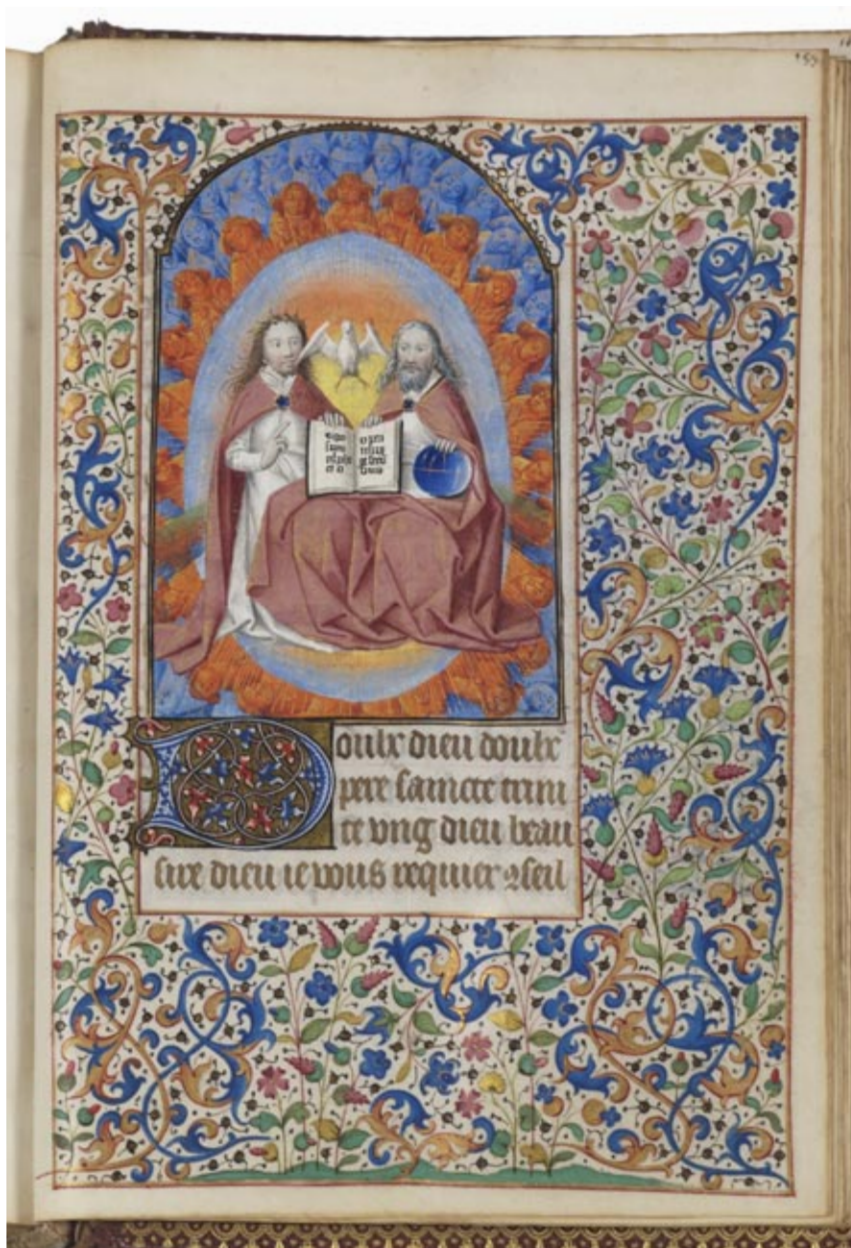 Doulx dieu doulx
pere saincte trini
te vng dieu beau
sire dieu ie vous requier ꝯseil